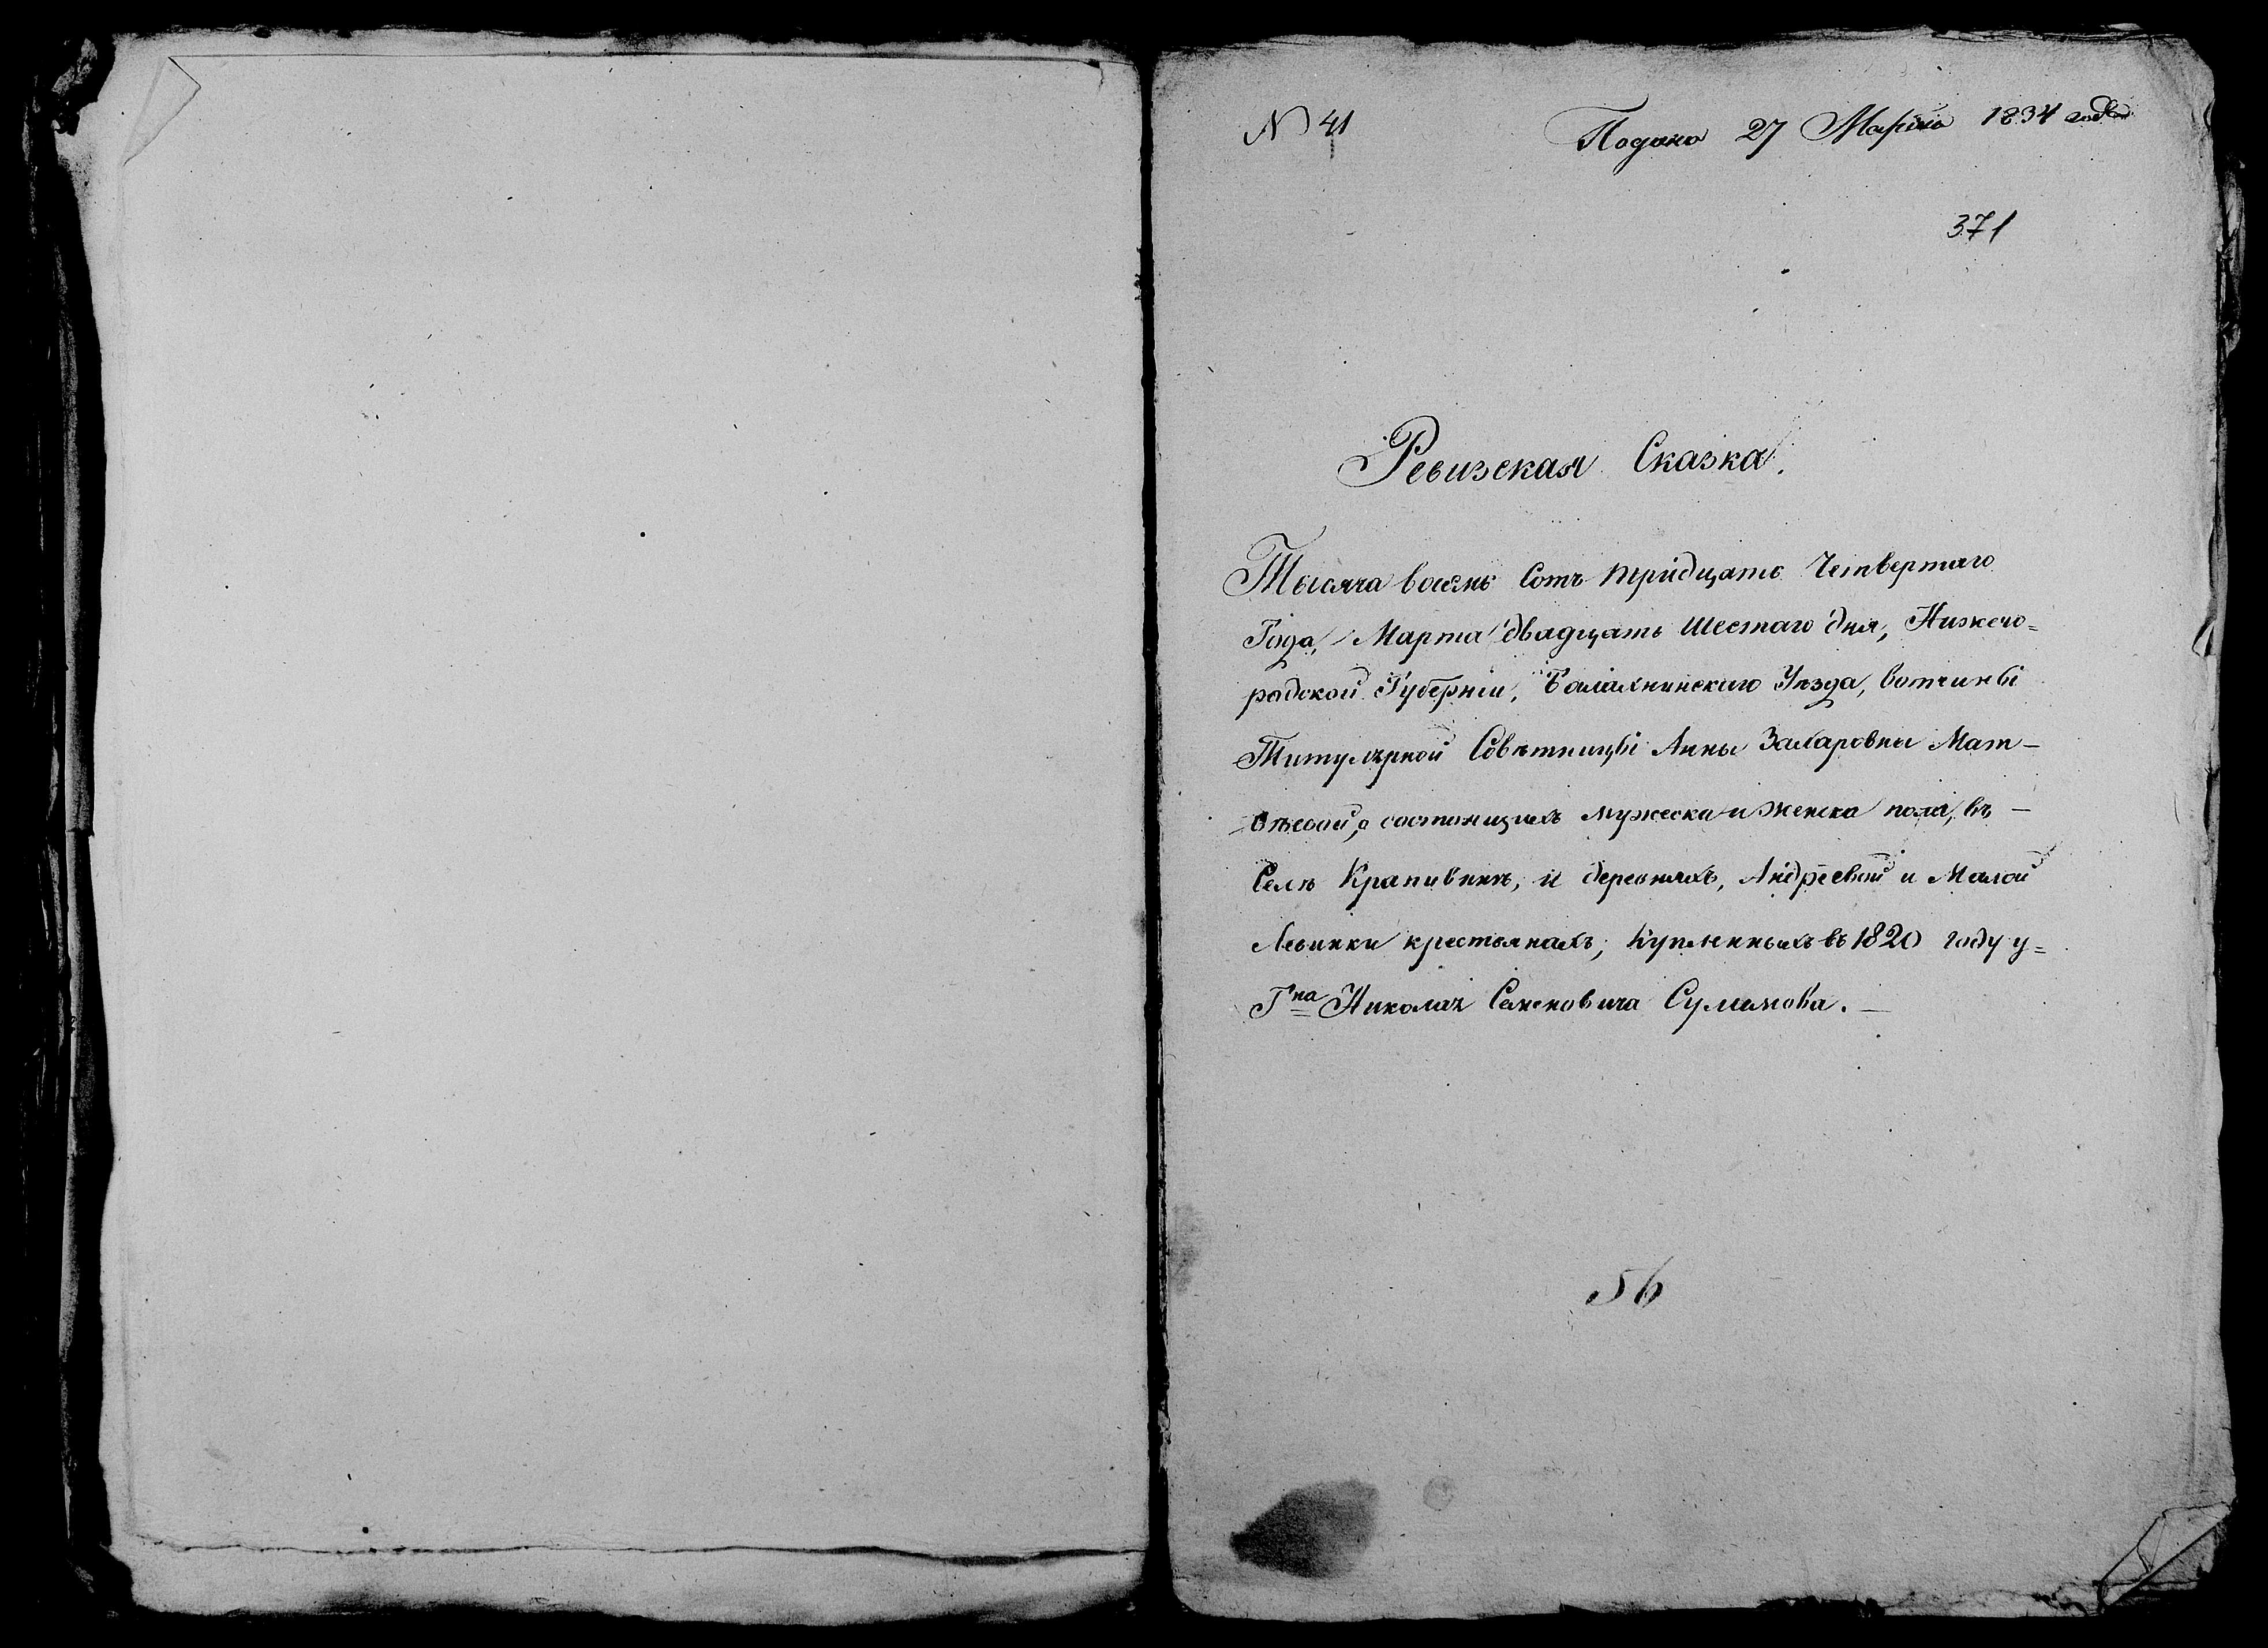 N 41 Подана 27 Марта 1834 года
371
Ревизская Сказка.
Тысяча восемь Сотъ тридцать Четвертаго
Года, Марта двадцать шестаго дня, Нижего=
родской Губерніи, Балахнинскаго Уѣзда, вотчины
Титулярной Совѣтницы Анны Захаровны Мат-
вѣевой, о состоящихъ мужеска и женска пола, въ -
Селѣ Крапивинѣ, и деревняхъ, Андреевой и Малой
Левинки крестьянахъ, купленныхъ въ 1820 году у=
Гна Николая Семеновича Сулимова. -
56